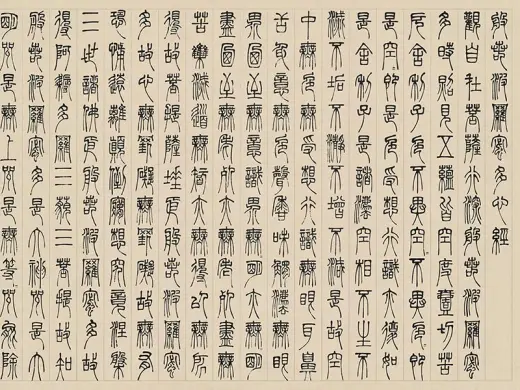 般若波羅蜜多心經
觀自在菩薩行深般若波羅蜜
多時照見五蘊皆空度壹切苦
厄舍利子色不異空〻不異色〻即
是空〻即是色受想行識亦復如
是舍利子是諸法空相不生不
滅不垢不淨不增不減是故空
中無色無受想行識無眼耳鼻
舌身意無色聲香味觸法無眼
界乃至無意識界無〻明亦無〻明
盡乃至無老死亦無老死盡無
苦集滅道無智亦無得以無所
得故菩提薩埵依般若波羅蜜
多故心無罣礙無罣礙故無有
恐怖遠離顛倒夢想究竟涅槃
三世諸佛依般若波羅蜜多故
得阿耨多羅三藐三菩提故知
般若波羅蜜多是大神咒是大
明咒是無上咒是無等〻咒能除